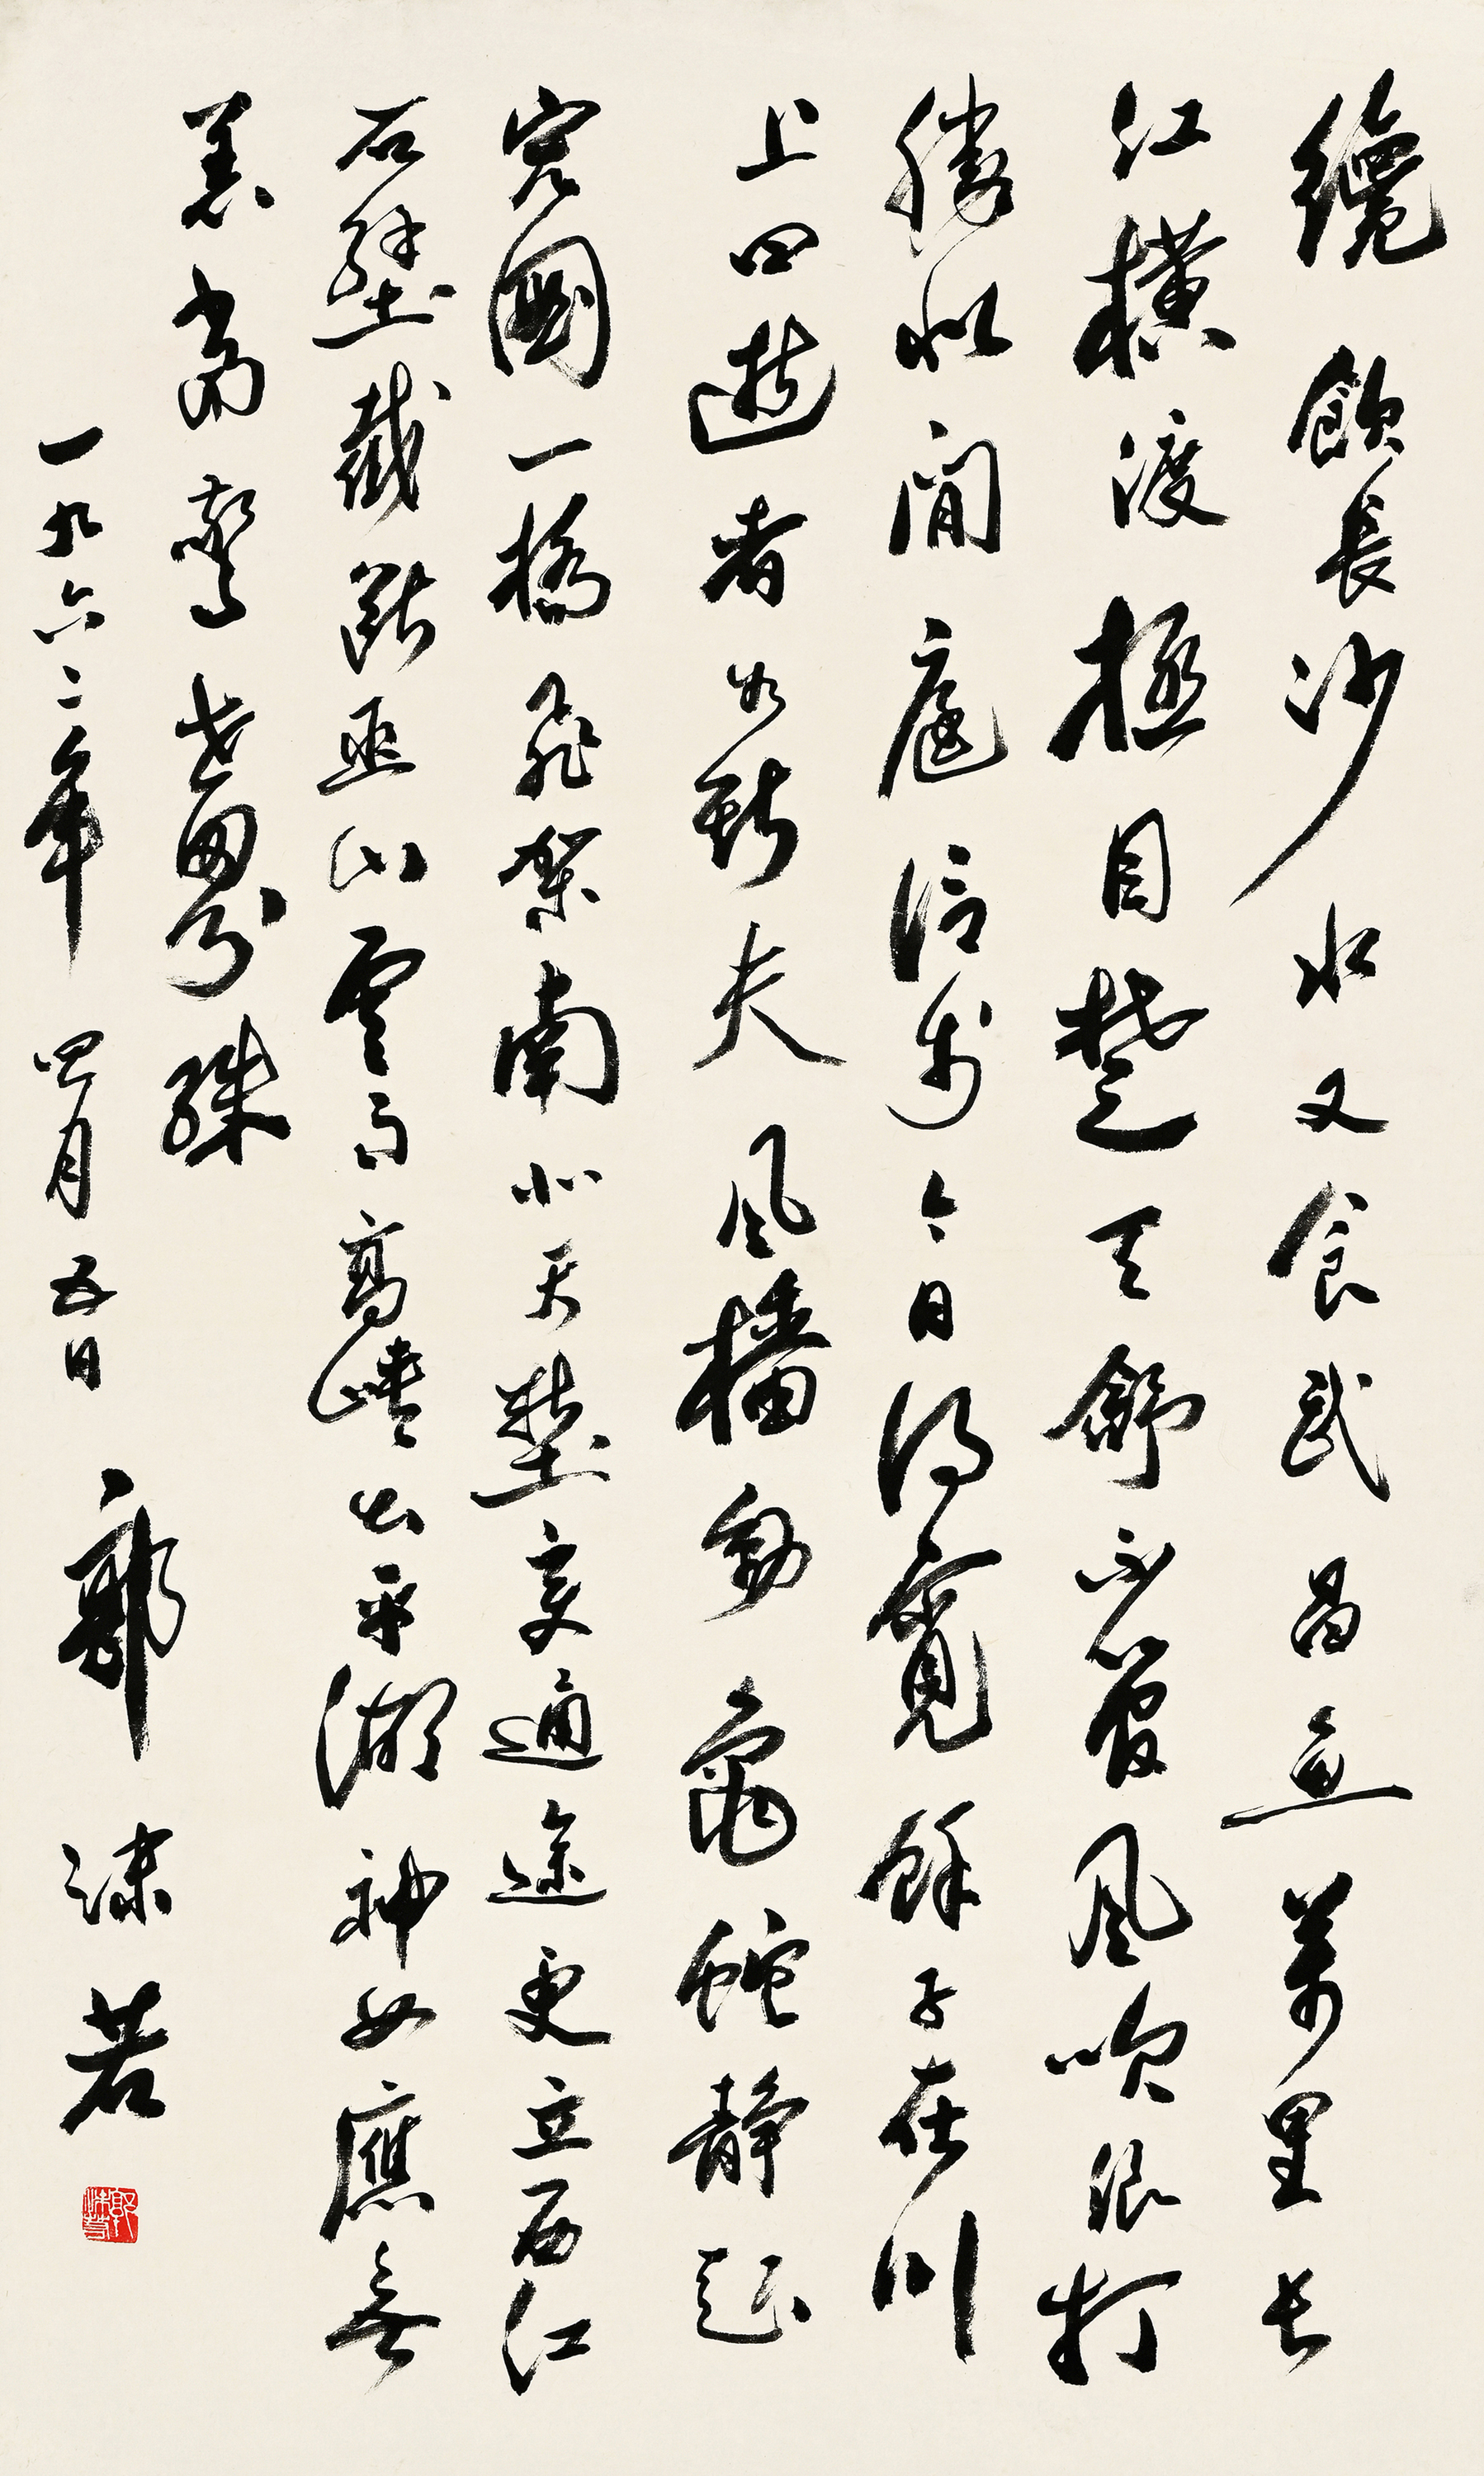 纔飲長沙水又食武昌魚萬里長
江橫渡極目楚天舒不管風吹浪打
勝似閒庭信步今日得寬餘子在川
上曰逝者如斯夫風檣動龜蛇靜起
宏圖一橋飛架南北天塹變通途更立西江
石壁截斷巫山雲雨高峽出平湖神女應無
恙當驚世界殊
一九六二年四月五日 郭沫若
郭沫若